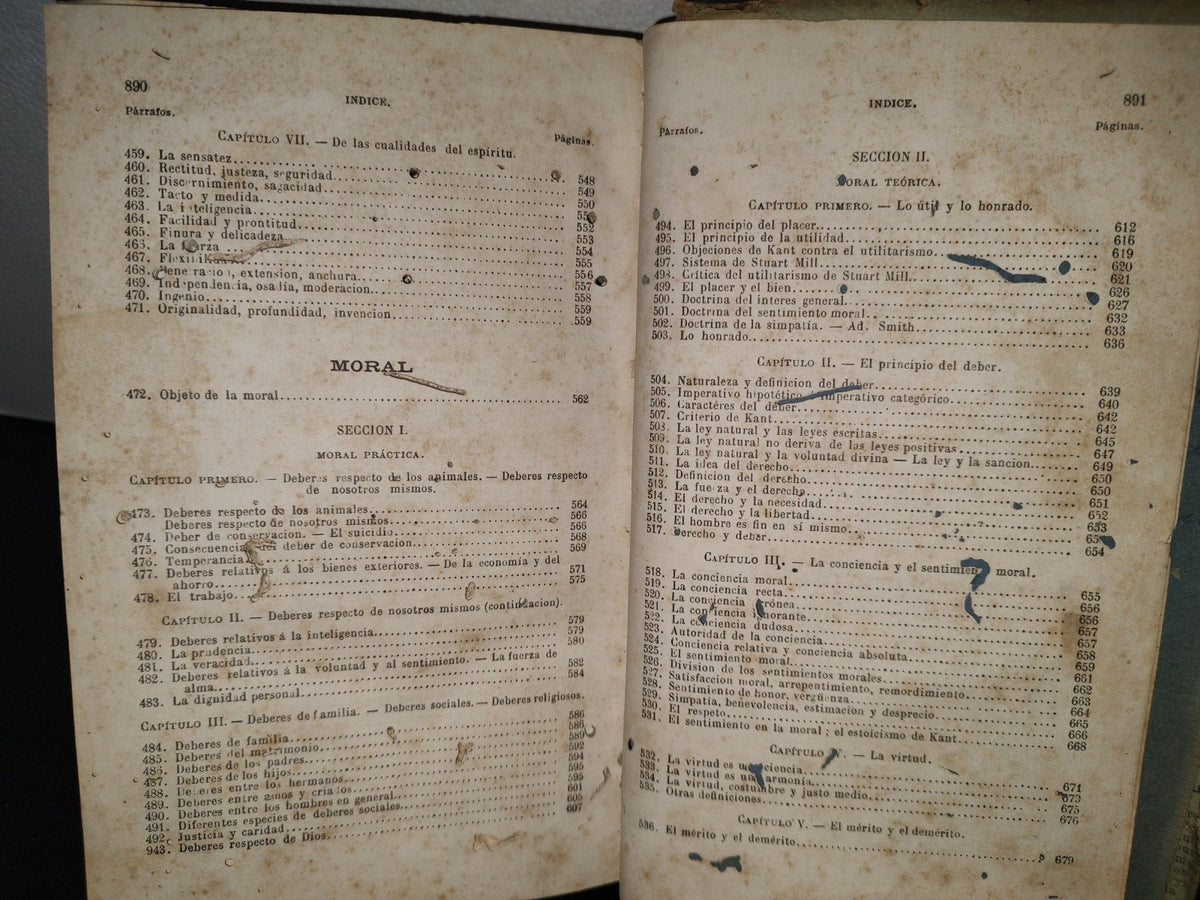 890
INDICE.
Párrafos.
Páginas.
CAPÍTULO VII. — De las cualidades del espíritu.
459. La sensatez 548
460. Rectitud, justeza, seguridad 549
461. Discernimiento, sagacidad 550
462. Tacto y medida
463. La inteligencia 552
464. Facilidad y prontitud 553
465. Finura y delicadeza 554
466. La fuerza 555
467. 556
468. extension, anchura 557
469. Independencia, osadia, moderacion 558
470. Ingenio 559
471. Originalidad, profundidad, invencion 559
MORAL
472. Objeto de la moral 562
SECCION I.
MORAL PRÁCTICA.
CAPÍTULO PRIMERO. — Deberes respecto de los animales. — Deberes respecto
de nosotros mismos.
473. Deberes respecto de los animales 564
Deberes respecto de nosotros mismos 566
474. Deber de conservacion. — El suicidio 566
475. Consecuencias del deber de conservacion 568
476. Temperancia 569
477. Deberes relativos á los bienes exteriores. — De la economía y del
ahorro 571
478. El trabajo 575
CAPÍTULO II. — Deberes respecto de nosotros mismos (continuacion).
479. Deberes relativos á la inteligencia 579
480. La prudencia 579
481. La veracidad 580
482. Deberes relativos á la voluntad y al sentimiento. — La fuerza de
alma 582
483. La dignidad personal 584
CAPÍTULO III. — Deberes de familia. — Deberes sociales. — Deberes religiosos.
484. Deberes de familia 586
485. Deberes del matrimonio 586
486. Deberes de los padres 589
487. Deberes de los hijos 592
488. Deberes entre los hermanos 594
489. Deberes entre amos y criados 595
490. Deberes entre los hombres en general 595
491. Diferentes especies de deberes sociales 601
492. Justicia y caridad 605
943. Deberes respecto de Dios 607
INDICE.
891
Párrafos.
Páginas.
SECCION II.
MORAL TEÓRICA.
CAPÍTULO PRIMERO. — Lo útil y lo honrado.
494. El principio del placer 612
495. El principio de la utilidad 616
496. Objeciones de Kant contra el utilitarismo 619
497. Sistema de Stuart Mill 620
498. Crítica del utilitarismo de Stuart Mill 621
499. El placer y el bien 626
500. Doctrina del interes general 627
501. Doctrina del sentimiento moral 632
502. Doctrina de la simpatía. — Ad. Smith 633
503. Lo honrado 636
CAPÍTULO II. — El principio del deber.
504. Naturaleza y definicion del deber 639
505. Imperativo hipotético é imperativo categórico 640
506. Caractéres del deber 642
507. Criterio de Kant 642
508. La ley natural y las leyes escritas 645
509. La ley natural no deriva de las leyes positivas 647
510. La ley natural y la voluntad divina — La ley y la sancion 649
511. La idea del derecho 650
512. Definicion del derecho 650
513. La fuerza y el derecho 651
514. El derecho y la necesidad 652
515. El derecho y la libertad 653
516. El hombre es fin en sí mismo
517. Derecho y deber 654
CAPÍTULO III. — La conciencia y el sentimiento moral.
518. La conciencia moral 655
519. La conciencia recta 656
520. La conciencia errónea 656
521. La conciencia ignorante 657
522. La conciencia dudosa 657
523. Autoridad de la conciencia 658
524. Conciencia relativa y conciencia absoluta 659
525. El sentimiento moral 661
526. Division de los sentimientos morales 662
527. Satisfaccion moral, arrepentimiento, remordimiento 663
528. Sentimiento de honor, vergüenza 664
529. Simpatía, benevolencia, estimacion y desprecio 665
530. El respeto 666
531. El sentimiento en la moral; el estoicismo de Kant 668
CAPÍTULO IV. — La virtud.
532. La virtud es una ciencia 671
533. La virtud es una armonía 673
534. La virtud, costumbre y justo medio 675
535. Otras definiciones 676
CAPÍTULO V. — El mérito y el demérito.
536. El mérito y el demérito 679